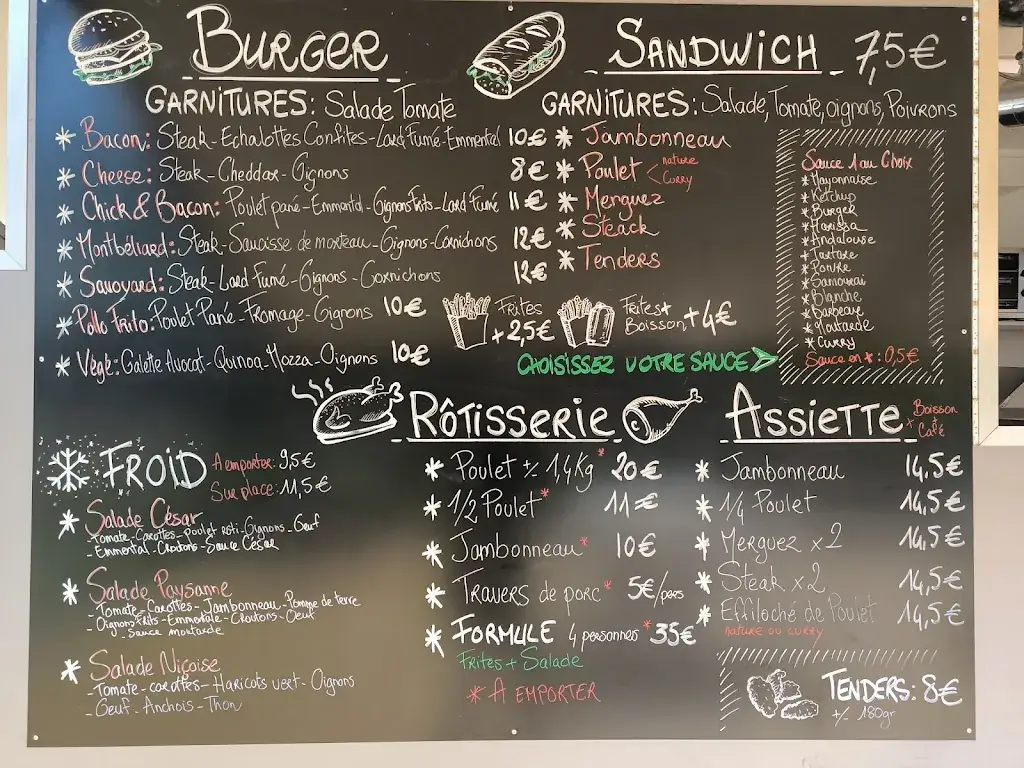 BURGER
GARNITURES: Salade Tomate
* Bacon: Steak-Echalottes Confites-Lard Fumé-Emmental 10€
* Cheese: Steak-Cheddar-Oignons 8€
* Chick & Bacon: Poulet pané-Emmental-Oignons Frits-Lard Fumé 11€
* Montbéliard: Steak-Saucisse de morteau-Oignons-Cornichons 12€
* Savoyard: Steak-Lard Fumé-Oignons-Cornichons 12€
* Pollo Frito: Poulet Pané-Fromage-Oignons 10€
* Végé: Galette Avocat-Quinoa Mozza-Oignons 10€
SANDWICH 7,5€
GARNITURES: Salade, Tomate, oignons, Poivrons
* Jambonneau
* Poulet < nature
Curry
* Merguez
* Steack
* Tenders
Sauce 1 au Choix
* Mayonnaise
* Ketchup
* Burger
* Harissa
* Andalouse
* Tartare
* Poivre
* Samouraï
* Blanche
* Barbecue
* Moutarde
* Curry
Sauce en +: 0,5€
Frites
+2,5€
Frites+
Boisson +4€
CHOISISSEZ VOTRE SAUCE >
FROID A emporter: 9,5€
Sur place: 11,5€
* Salade César
Tomate-Carottes-poulet roti-Oignons-Oeuf
-Emmental-Croutons-Sauce César
* Salade Paysanne
-Tomate-Carottes-Jambonneau-Pomme de terre
-Oignons Frits-Emmentale-Croutons-Oeuf
-Sauce moutarde
* Salade Niçoise
-Tomate-carottes-Haricots vert-Oignons
-Oeuf-Anchois-Thon
RÔTISSERIE
* Poulet +/- 1,4Kg* 20€
* 1/2 Poulet* 11€
* Jambonneau* 10€
* Travers de porc* 5€/pers
* FORMULE 4 personnes* 35€
Frites + Salade
* A EMPORTER
ASSIETTE + Boisson
+
Café
* Jambonneau 14,5€
* 1/4 Poulet 14,5€
* Merguez x2 14,5€
* Steak x2 14,5€
* Effiloché de Poulet 14,5€
nature ou curry
TENDERS: 8€
+/- 180gr